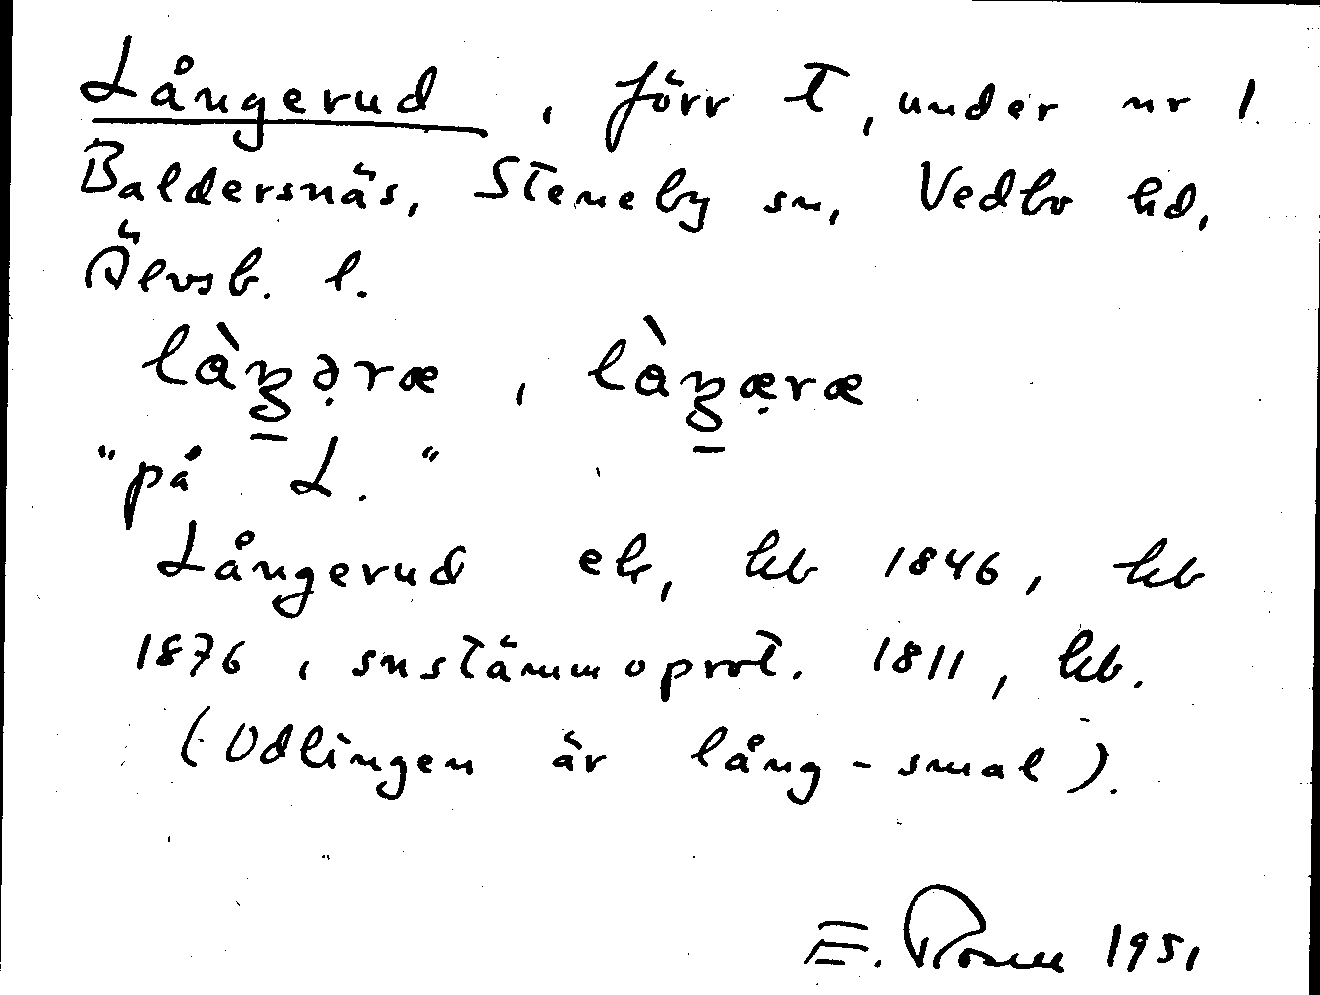 Långerud, förr T, under nr 1
Baldersnäs, Steneby sn, Vedbo hd,
Älvsb. l.
"på L."
Långerud ek, hb 1846, hb
1876, snstämmoprot. 1811, hb.
(Odlingen är lång-smal).
E. 1951